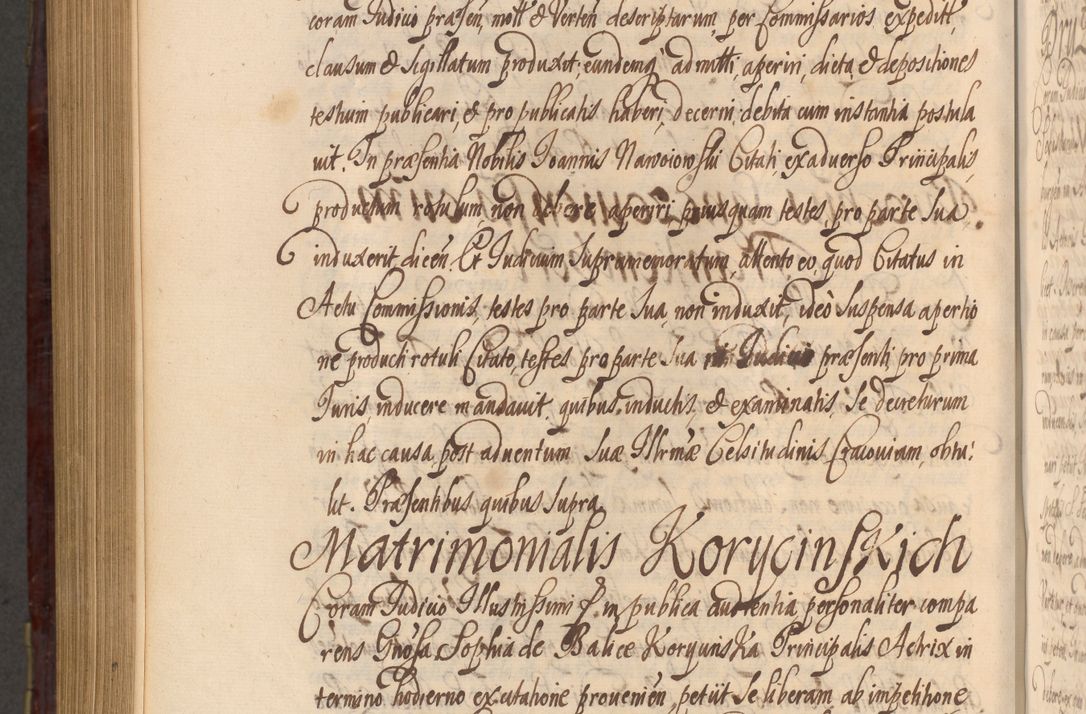 coram Iudicio præsen, mott & Verten descriptarum, per Commissarios expeditt,
clausum & Sigillatum produxit, eundemq̃ admitti, aperiri, dicta, & depositiones
testium publicari, & pro publicatis haberi, decerni debita cum instantia postula
vit. In præsentia Nobilis Ioannis Citati, ex aduerso Principalis,
productum rotulum, non debere aperyri, priusquam testes, pro parte Sua,
induxerit, dicen̄. Et Iudicium Supramemoratum, attento eo, quod Citatus in
Actu Commissionis, testes pro parte Sua, non induxit, ideò Suspensa apertio
ne producti rotuli Citato, testes, pro parte Sua præsenti, pro prima
Iuris, inducere mandauit. quibus inductis, & examinatis, Se decreturum
in hac causa, post aduentum Suæ Illr̃mæ Celsitudinis Cracouiam, obtu:
lit. Præsentibus quibus Supra
Matrimonialis Korycinskich
Coram Iudicio Illustrissimi in publica audientia, personaliter compa
rens Gnõsa Sophia de Balice Korycinska Principalis Actrix in
termino hodierno ex citatione prouenien̄, petiit Se liberam ab impetitione